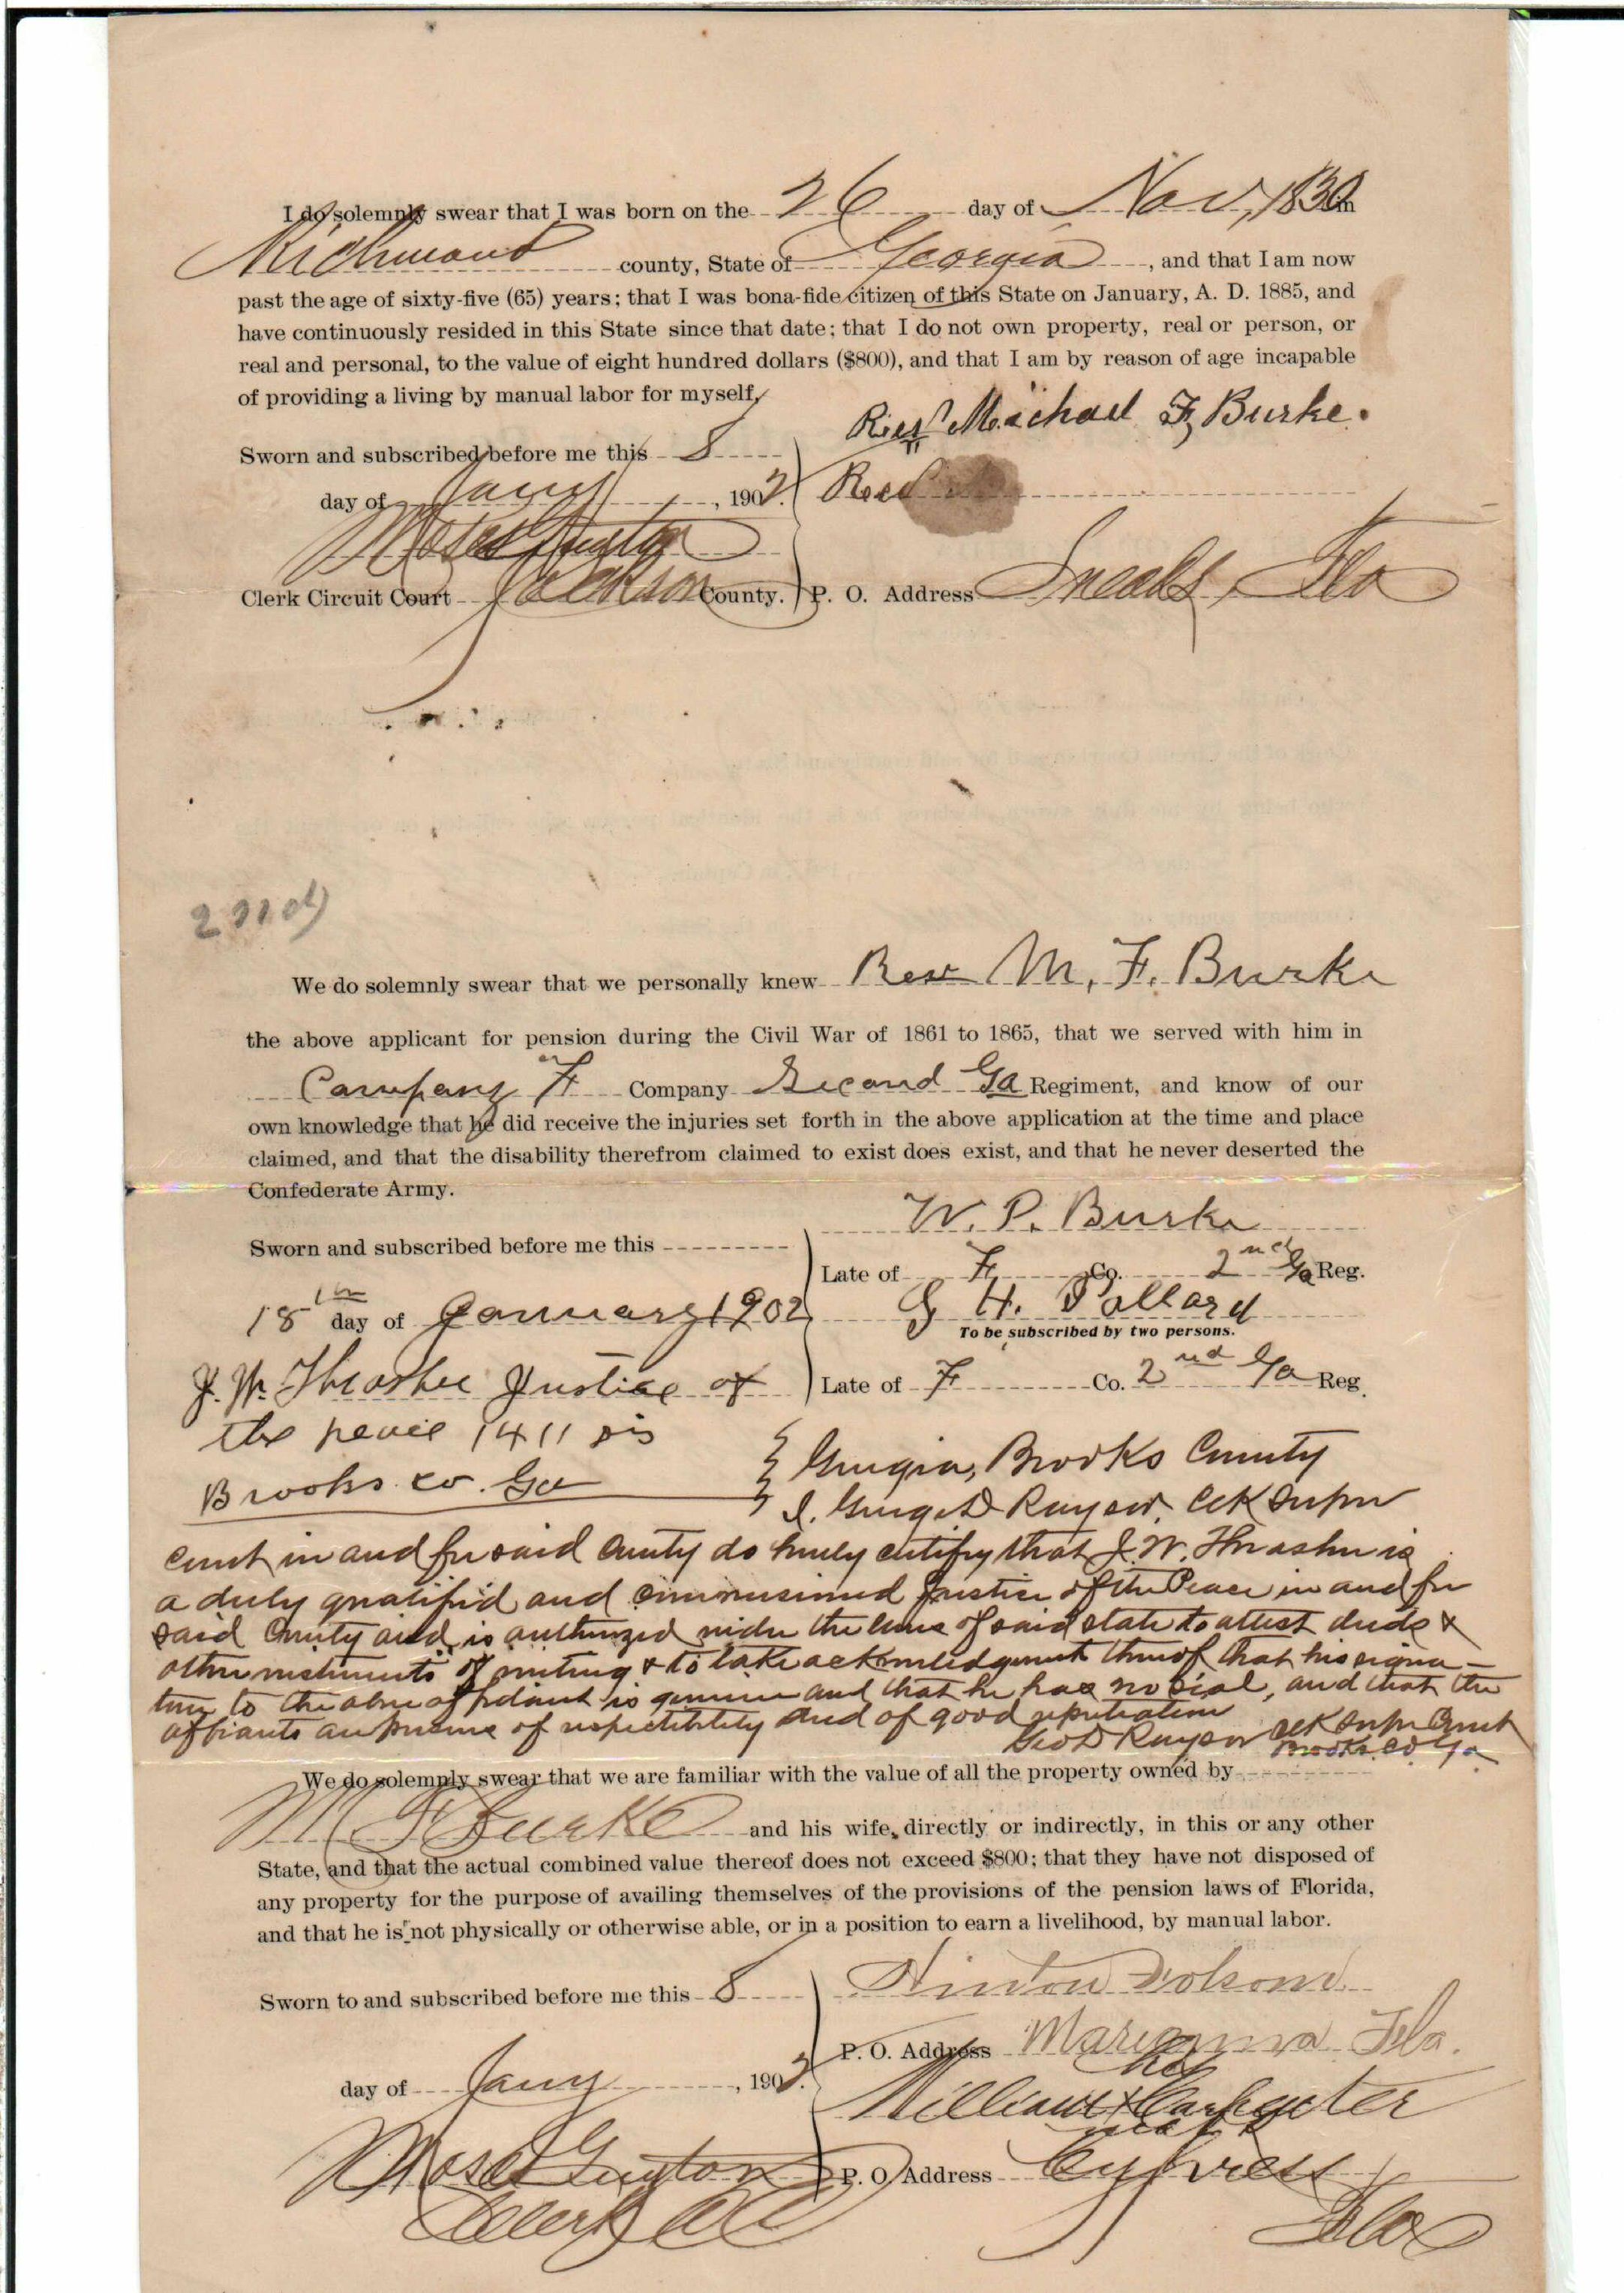 I do solemnly swear that I was born on the 26 day of Nov, 1830 in
Richmond county, State of Georgia, and that I am now
past the age of sixty-five (65) years; that I was bona-fide citizen of this State on January, A. D. 1885, and
have continuously resided in this State since that date; that I do not own property, real or person, or
real and personal, to the value of eight hundred dollars ($800), and that I am by reason of age incapable
of providing a living by manual labor for myself,
Rev Michael F Burke.
Sworn and subscribed before me this 8
day of Jany, 1902.
Moses Guyton
Clerk Circuit Court Jackson County. P. O. Address Sneads, Fla
2nd
We do solemnly swear that we personally knew Rev M. F. Burke
the above applicant for pension during the Civil War of 1861 to 1865, that we served with him in
Company F Company Second Ga Regiment, and know of our
own knowledge that he did receive the injuries set forth in the above application at the time and place
claimed, and that the disability therefrom claimed to exist does exist, and that he never deserted the
Confederate Army.
W. P. Burke
Sworn and subscribed before me this
Late of F Co. 2nd Ga Reg.
18th day of January 1902
G H. Pollard
To be subscribed by two persons.
J. W. Thrasher Justice of
Late of F Co. 2nd Ga Reg.
the peace 1411 Dis
Brooks co. Ga
Georgia, Brooks County
I. George D Raysor, Clk Supr
Court in and for said County do hereby certify that J. W. Thrasher is
a duly qualified and commissioned Justice of the Peace in and for
said County and is authorized under the laws of said state to attest deeds &
other instruments of writing & to take acknowledgment thereof that his signa-
ture to the above affidavit is genuine and that he has no Seal, and that the
affiants are persons of respectability and of good reputation
Geo D Raysor Clk Supr Court
Brooks Co Ga
We do solemnly swear that we are familiar with the value of all the property owned by
M F Burke and his wife, directly or indirectly, in this or any other
State, and that the actual combined value thereof does not exceed $800; that they have not disposed of
any property for the purpose of availing themselves of the provisions of the pension laws of Florida,
and that he is not physically or otherwise able, or in a position to earn a livelihood, by manual labor.
Sworn to and subscribed before me this 8
Hinton Folsom
P. O. Address Marianna Fla.
day of Jany, 1902.
his
William x Carpenter
mark
Moses Guyton
P. O. Address Cypress
Clerk CC
Fla